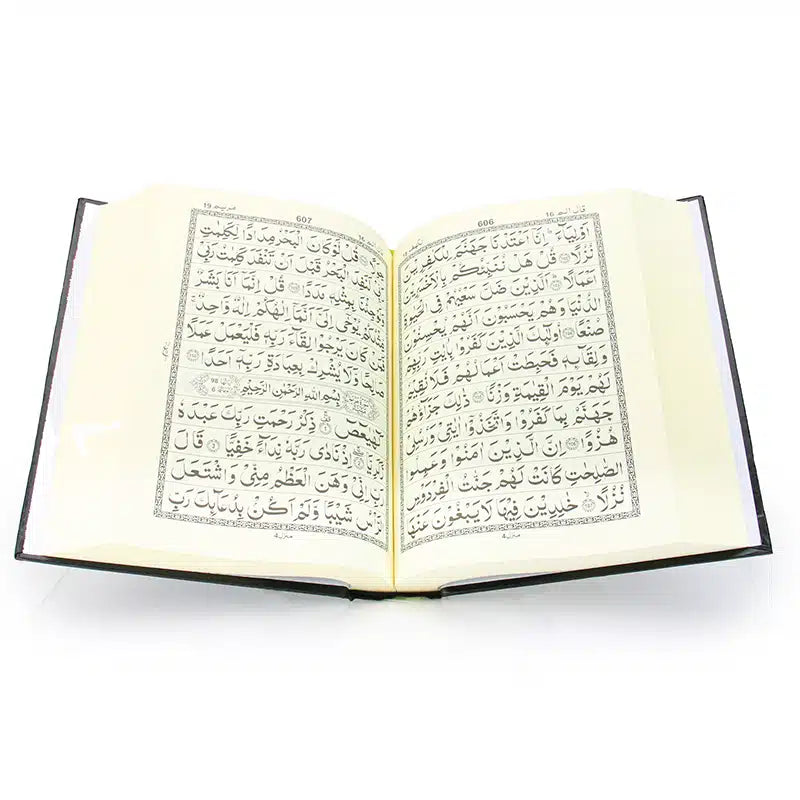 قال الم 16
606
اَوْلِيَآءَ ؕ اِنَّاۤ اَعْتَدْنَا جَهَنَّمَ لِلْكٰفِرِيْنَ
نُزُلًا ۝ قُلْ هَلْ نُنَبِّئُكُمْ بِالْاَخْسَرِيْنَ
اَعْمَالًا ۝ اَلَّذِيْنَ ضَلَّ سَعْيُهُمْ فِى الْحَيٰوةِ
الدُّنْيَا وَهُمْ يَحْسَبُوْنَ اَنَّهُمْ يُحْسِنُوْنَ
صُنْعًا ۝ اُولٰٓئِكَ الَّذِيْنَ كَفَرُوْا بِاٰيٰتِ رَبِّهِمْ
وَلِقَآئِهٖ فَحَبِطَتْ اَعْمَالُهُمْ فَلَا نُقِيْمُ
لَهُمْ يَوْمَ الْقِيٰمَةِ وَزْنًا ۝ ذٰلِكَ جَزَآؤُهُمْ
جَهَنَّمُ بِمَا كَفَرُوْا وَاتَّخَذُوْۤا اٰيٰتِىْ وَرُسُلِىْ
هُزُوًا ۝ اِنَّ الَّذِيْنَ اٰمَنُوْا وَعَمِلُوا
الصّٰلِحٰتِ كَانَتْ لَهُمْ جَنّٰتُ الْفِرْدَوْسِ
نُزُلًا ۝ خٰلِدِيْنَ فِيْهَا لَا يَبْغُوْنَ عَنْهَا
منزل 4
607
مريم 19
قُلْ لَّوْ كَانَ الْبَحْرُ مِدَادًا لِّكَلِمٰتِ
لَنَفِدَ الْبَحْرُ قَبْلَ اَنْ تَنْفَدَ كَلِمٰتُ رَبِّىْ
وَلَوْ جِئْنَا بِمِثْلِهٖ مَدَدًا ۝ قُلْ اِنَّمَاۤ اَنَا بَشَرٌ
مِّثْلُكُمْ يُوْحٰۤى اِلَىَّ اَنَّمَاۤ اِلٰهُكُمْ اِلٰهٌ وَّاحِدٌ
فَمَنْ كَانَ يَرْجُوْا لِقَآءَ رَبِّهٖ فَلْيَعْمَلْ عَمَلًا
صَالِحًا وَّلَا يُشْرِكْ بِعِبَادَةِ رَبِّهٖۤ اَحَدًا ۝
بِسْمِ اللّٰهِ الرَّحْمٰنِ الرَّحِيْمِ
كٓهٰيٰعٓصٓ ۝ ذِكْرُ رَحْمَتِ رَبِّكَ عَبْدَهٗ
زَكَرِيَّا ۝ اِذْ نَادٰى رَبَّهٗ نِدَآءً خَفِيًّا ۝ قَالَ
رَبِّ اِنِّىْ وَهَنَ الْعَظْمُ مِنِّىْ وَاشْتَعَلَ
الرَّاْسُ شَيْبًا وَّلَمْ اَكُنْۢ بِدُعَآئِكَ رَبِّ
منزل 4